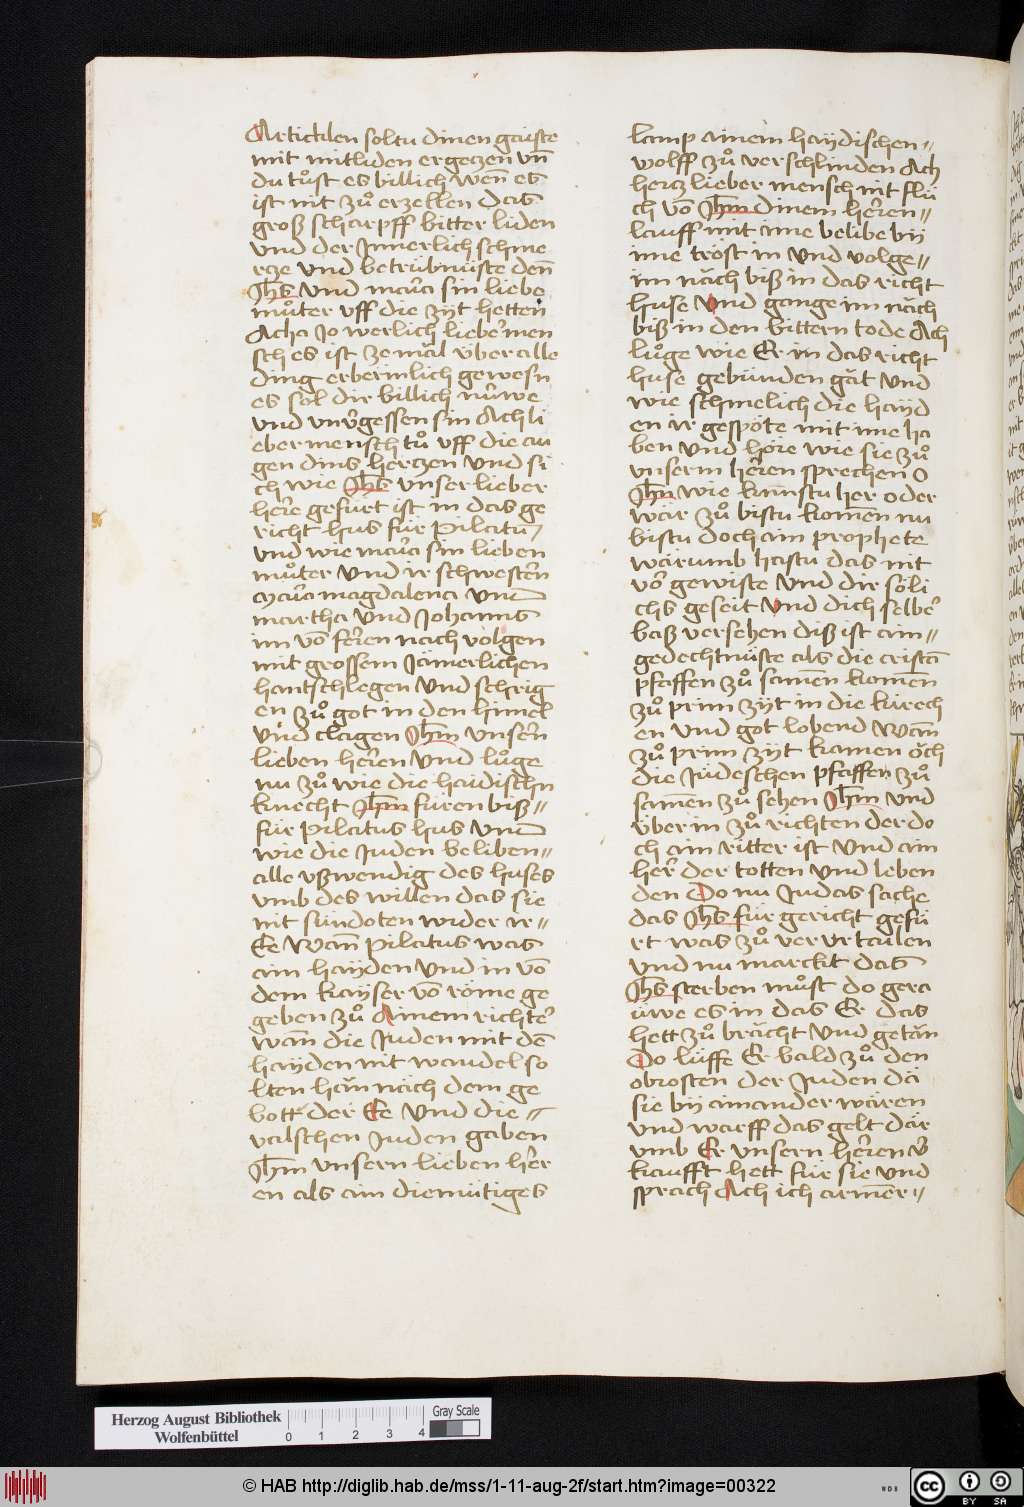 Artickelen soltu dinen gaiste
mit mitliden ergeczen vn̄
du tuͦst es billich wen̄ es
ist nit zuͦ erzellen das
groß scharpff bitter liden
vnd der Jnnerlich schme
rcze vnd betruͤbnuͤste den̄
Jhs vnd maria sin liebe
muͦter vff die zijt hetten
Acha Jo werlich lieber men
sch es ist ze mǎl vͤber alle
ding erbermlich gewesn
es sol dir billich nuͤwe
vnd vnv̉gessen sin Ach li
eber mensch tuͦ vff die au
gen dins herczen vnd si
ch wie Jhs vnser lieber
here gefuͤrt ist in das ge
richt hus fuͤr Pilatu/
vnd wie maria sin lieben
muͦter vnd ir schwestern
maria magdalena vnd
martha vnd Johannis
im vō feren nach volgen
mit grossem Jamerlichen
hantschlegen vnd schrig
en zuͦ got in den himel
vnd clagen Jhm vnsern
lieben heren vnd luͦge
nu zuͦ wie die haidischn
knecht Jhm fuͤren biß=
fuͤr Pilatus hus vnd
wie die Juden beliben=
alle vßwendig des huses
vmb des willen das sie
nit suͤndoten wider ir=
Ee Wan̄ Pilatus was
ain hayden vnd in vō
dem kayser vō röme ge
geben zuͦ Ainem richter
wan̄ die Juden mit dē
hayden nit wandel so
lten hǎn nǎch dem ge
bott der Ee vnd die=
valschen Juden gaben
Jhm vnsern lieben her
en als ain diemuͤtiges
lamp ainem haydischen=
wolff zuͦ verschlinden Ach
hercz lieber mensch nit fluͤ
ch vō Jhm dinem heren=
lauff mit ime belibe bij
ime tröst in vnd volge=
im nǎch biß in das richt
huse vnd gange im nǎch
biß in den bittern tode Ach
luͦge wie Er in das richt
huse gebunden gǎt vnd
wie schmelich die hayd
en ir gespöte mit ime ha
ben vnd höre wie sie zuͦ
vnserm heren sprechen O
Jhm wie kanstu her oder
wǎr zuͦ bistu komen nu
bistu doch ain prophete
wǎrumb hastu das nit
vor gewiste vnd dir söli
chs geseit vnd dich selber
baß versehen diß ist ain=
gedechtnuͤste als die cristā
pfaffen zuͦ samen komen
zuͦ prim zijt in die kirech
en vnd got lobend Wan̄
zuͦ prim zijt kamen ǒch
die Juͤdeschen pfaffen zuͦ
samen zuͦ sehen Jhm vnd
vͤber in zuͦ richten der do
ch ain ritter ist vnd ain
her der totten vnd leben
den Do nu Judas sache
das Jhs fuͤr gericht gefuͤ
rt was zuͦ ver vrtailen
vnd nu marckt das
Jhs sterben muͦst do gera
uwe es in das Er das
hett zuͦ brǎcht vnd getǎn
Do luffe Er bald zuͦ den
obrosten der Juden dǎ
sie bij ainander wǎren
vnd warff das gelt dǎr
vmb Er vnsern heren v̉
kaufft hett fuͤr sie vnd
sprach Ach ich armer=
Herzog August Bibliothek
Wolfenbüttel
0 1 2 3 4
Gray Scale
© HAB http://diglib.hab.de/mss/1-11-aug-2f/start.htm?image=00322
cc BY SA